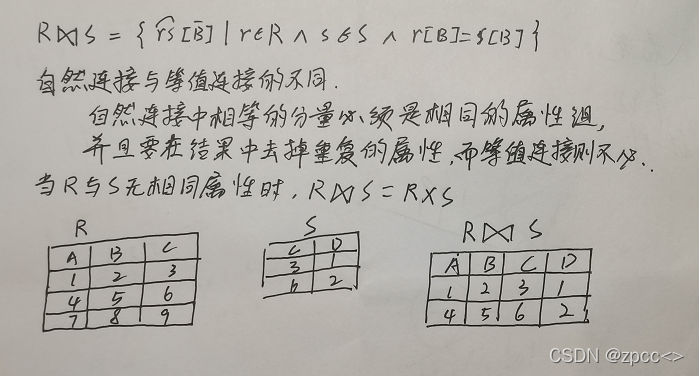 R⋈S = { r͡s [B̅] | r∈R ∧ s∈S ∧ r[B]=s[B] }
自然连接与等值连接的不同.
自然连接中相等的分量必须是相同的属性组,
并且要在结果中去掉重复的属性,而等值连接则不必.
当R与S无相同属性时, R⋈S = R×S
R S R⋈S
A B C C D A B C D
1 2 3 3 1 1 2 3 1
4 5 6 6 2 4 5 6 2
7 8 9
CSDN @zpcc<>